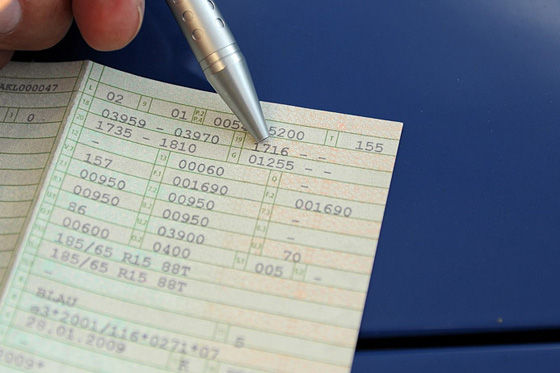 AKL000047
0
L 02 9 01 P.2 P.4 5200 T 155
18 03959 - 03970 19 1716 - -
20 1735 - 1810 G 01255 - -
- 00060 -
157 001690 001690
00950 00950 -
00950 00950 -
86 03900 70
00600 0400 005 -
185/65 R15 88T
185/65 R15 88T
-
BLAU - 5
e3*2001/116*0271*07
28.01.2009 K
2009*